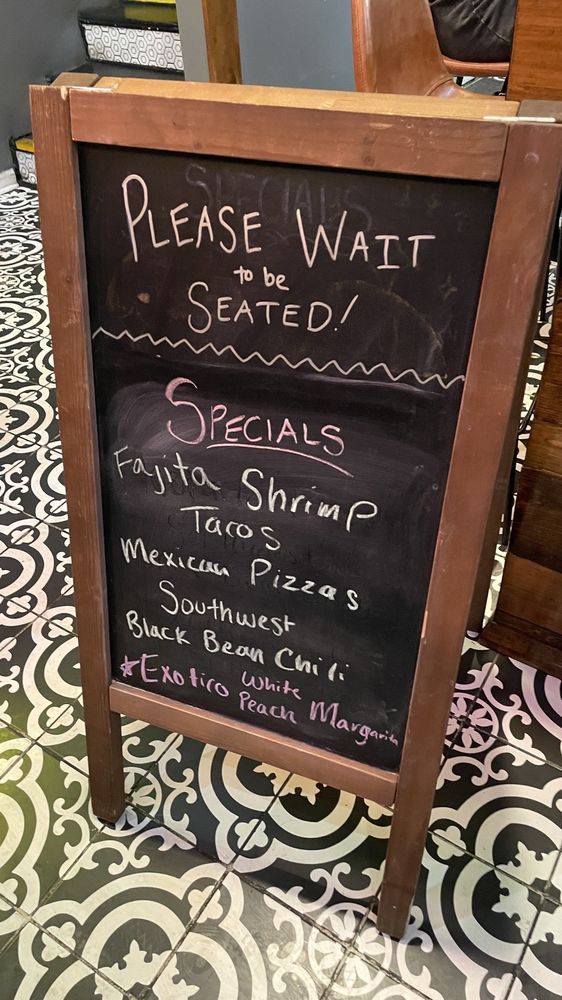 PLEASE WAIT
to be
SEATED!
SPECIALS
Fajita Shrimp
Tacos
Mexican Pizzas
Southwest
Black Bean Chili
*Exotico White
Peach Margarita